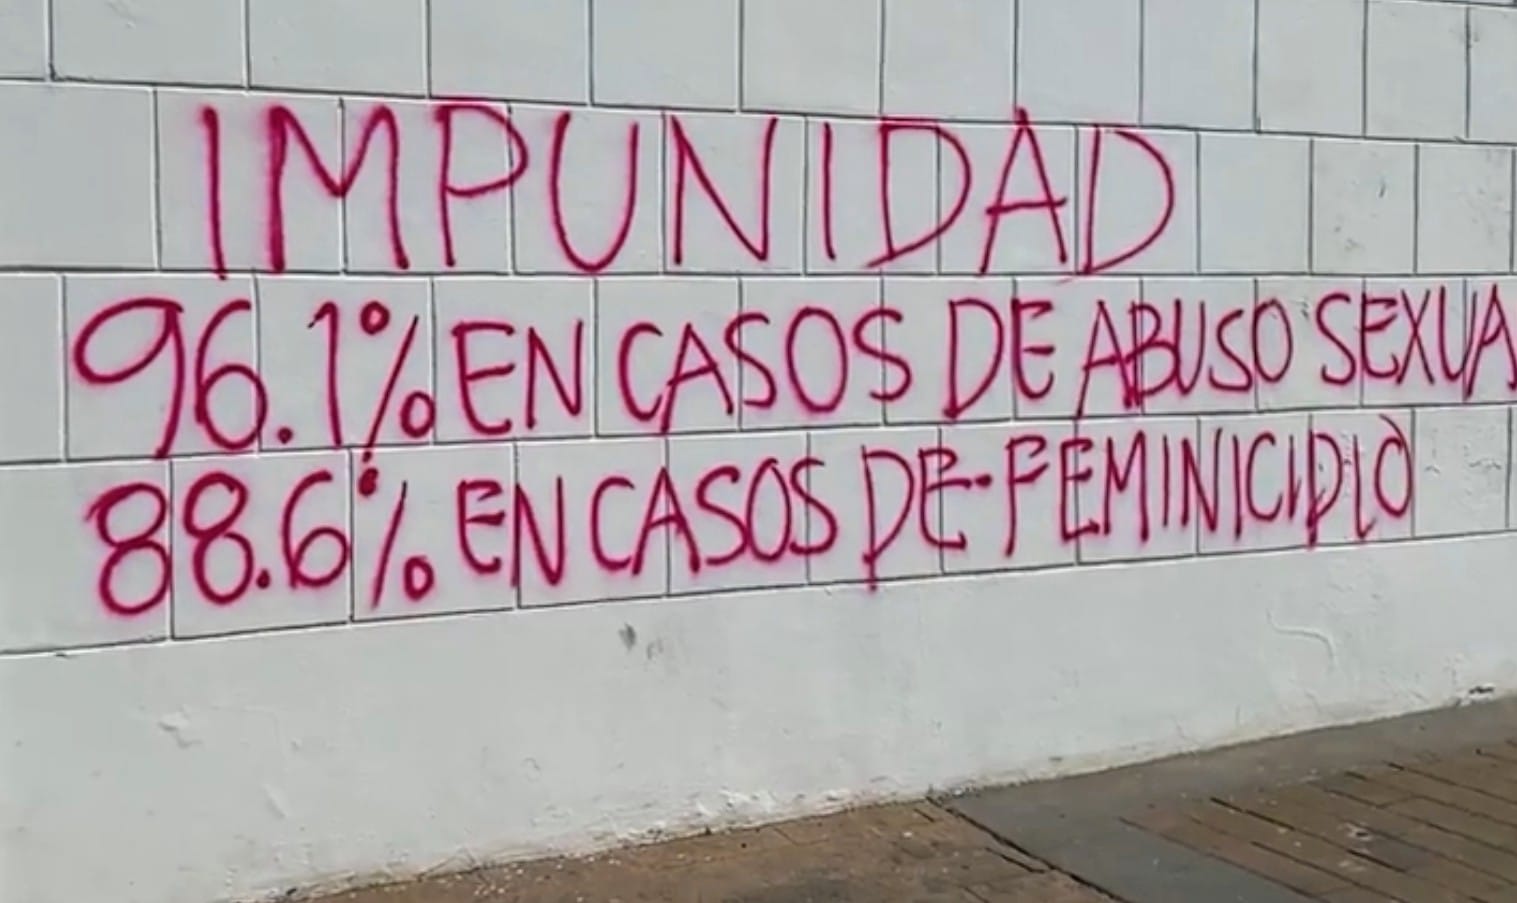 IMPUNIDAD
96.1% EN CASOS DE ABUSO SEXUA
88.6% EN CASOS DE FEMINICIDIO